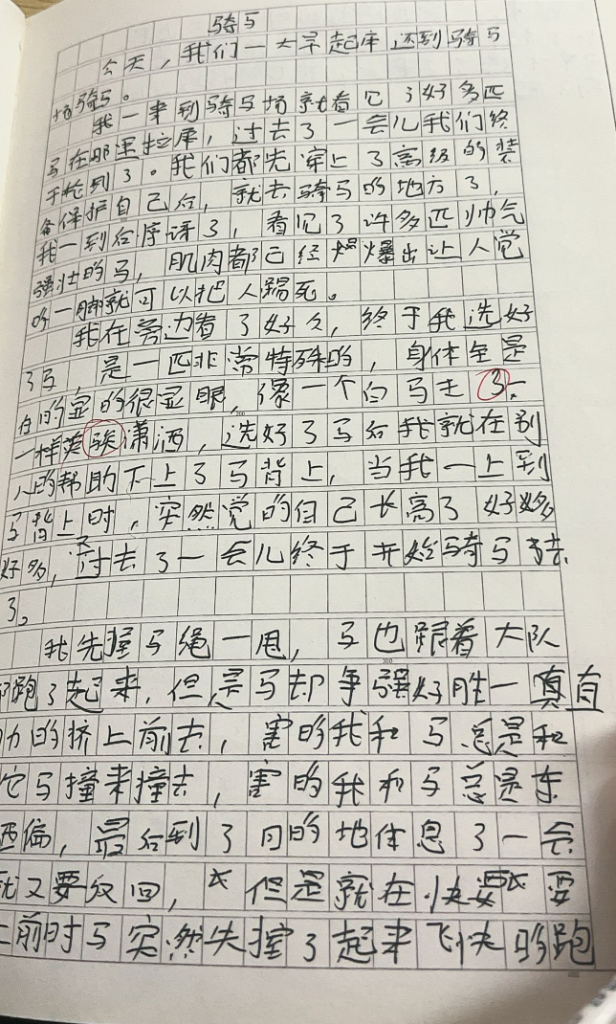 骑马
今天,我们一大早起床还到骑马
场骑马。
我一来到骑马场就看它了好多匹
马在那里拉屎,过去了一会儿我们终
于抢到了。我们都先穿上了高级的装
备保护自己后,就去骑马的地方了,
我一到后序讶了,看见了许多匹帅气
强壮的马,肌肉都已经爆出让人觉
的一脚就可以把人踢死。
我在旁边看了好久,终于我选好
了马,是一匹非常特殊的,身体全是
白的显的很显眼,像一个白马王了
一样英潇洒,选好了马后我就在别
人的帮助下上了马背上,当我一上到
马背上时,突然觉的自己长高了好多
好多,过去了一会儿终于开始骑马
了。
我先握马绳一甩,马也跟着大队
跑了起来,但是马却争强好胜一真直
力的挤上前去,害的我和马总是和
它马撞来撞去,害的我和马总是东
西偏,最后到了目的地休息了一会
就又要返回,但是就在快要
上前时马突然失握了起来飞快的跑